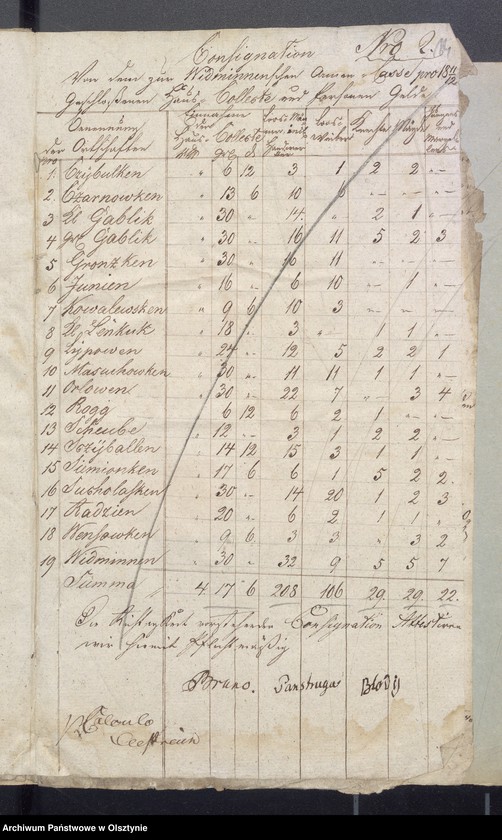 Consignation Nro 2.
Von dem zur Widminnenschen Armen Casse pro 18 11/12
Geschloßenen Haus-Collecte und Personen Gelde
No Benennung der Ortschaften Einnahme der Haus-Collecte Loos-Weiber Knechte Mägde
pro
1. Czybulken " 6 12 3 1 2 2 " —
2. Czarnowken " 13 6 10 6 — — " —
3 Kl Gablik " 30 " 14 " 2 1 " —
4 gr Gablik " 30 " 16 11 5 2 3
5 Gronzken " 30 " 6 11 — — " —
6 Junien " 16 " 6 10 — 1 " —
7 Kowalewsken " 9 6 10 3 — — " —
8 Kl Lenkuk " 18 " 3 " 1 1 " —
9 Lypowen " 24 " 12 5 2 2 1
10 Masuchowken " 30 " 11 11 1 1 " —
11 Orlowen " 30 " 22 7 " 3 4
12 Rogg 6 12 6 2 1 " — " —
13 Scheube " 12 " 3 1 2 2 " —
14 Sczyballen " 14 12 15 3 1 1 " —
15 Sümionken " 17 6 6 1 5 2 2.
16 Sucholasken " 30 " 14 20 1 2 3
17 Radzien " 20 " 6 2 1 1 " —
18 Wensowken " 9 6 3 3 " 3 2
19 Widminnen " 30 " 32 9 5 5 7
Summa 4. 17 6 208 106 29. 29. 22.
Die Richtigkeit vorstehender Consignation Attestiren
wir hiermit Pflichtmäßig
Bruno. Panstruga Blody
p Calculo
Archiwum Państwowe w Olsztynie